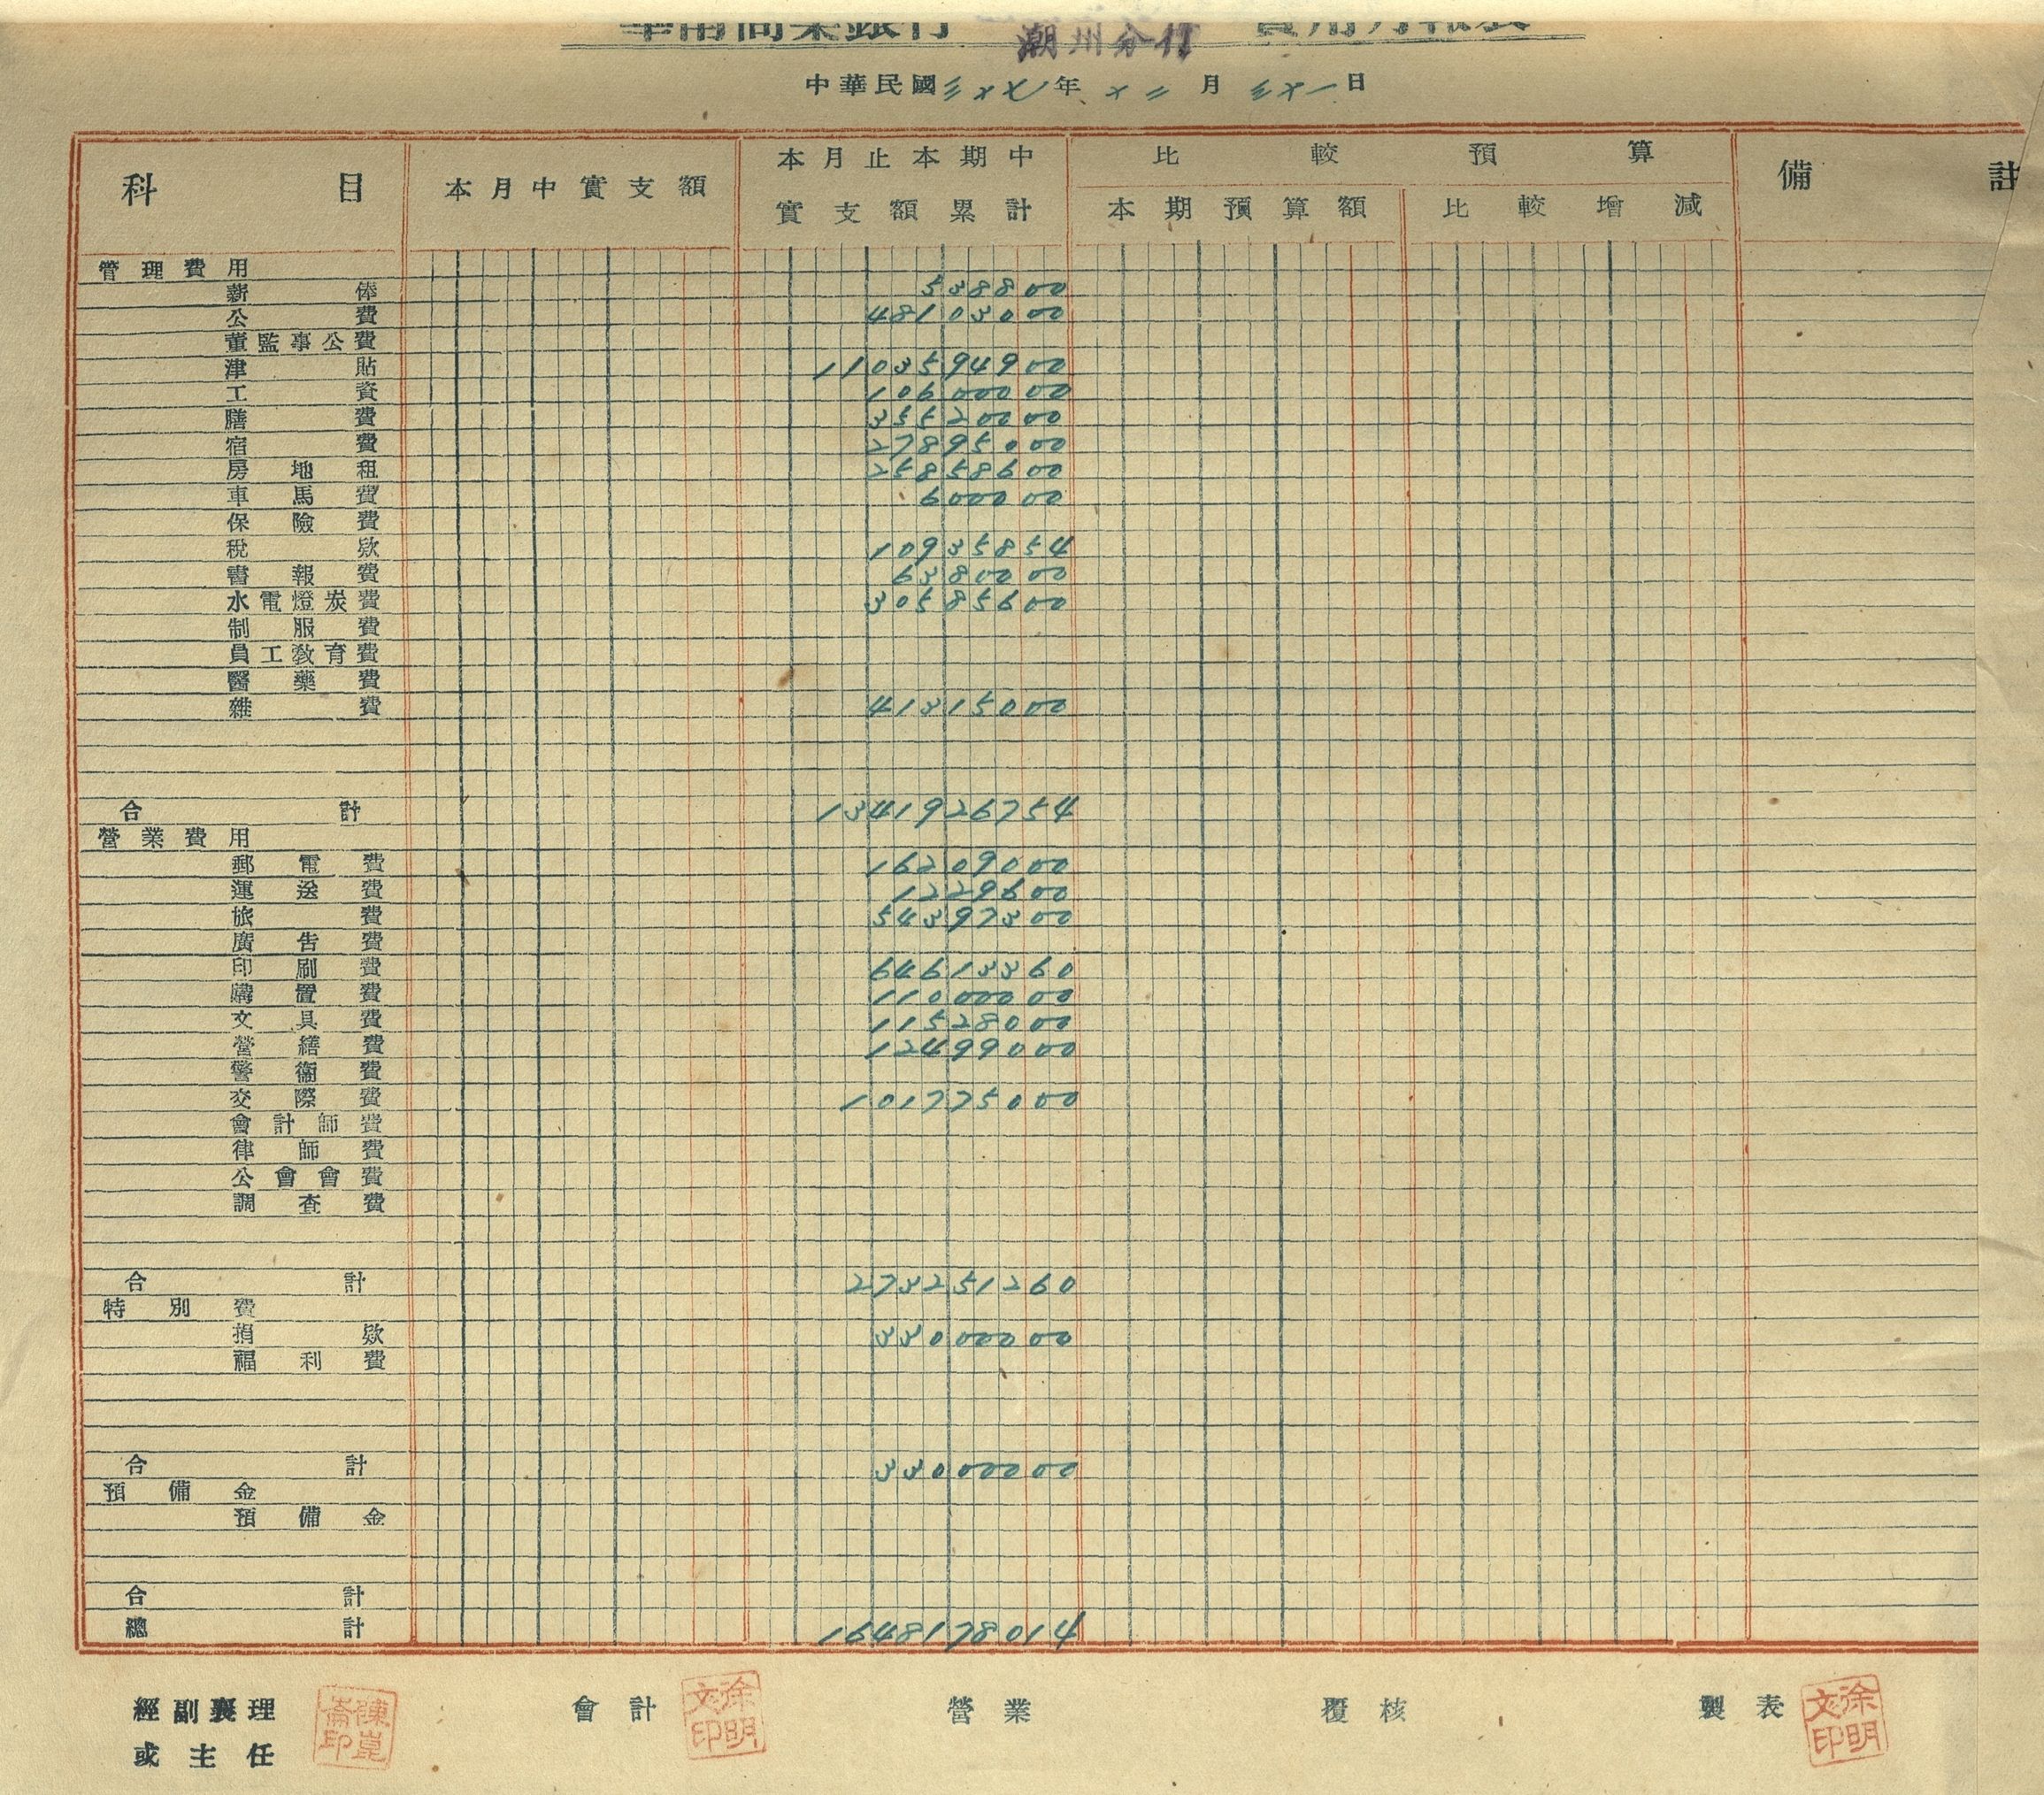 華南商業銀行 潮州分行 費用月報表
中華民國三十七年十二月三十一日
科目 本月中實支額 本月止本期中實支額累計 比較預算 備註
本期預算額 比較增減
管理費用
薪俸 538800
公費 48103000
董監事公費
津貼 1103594900
工資 10600000
膳費 35520000
宿費 27895000
房地租 25858600
車馬費 600000
保險費
稅欵 10935854
書報費 6380000
水電燈炭費 30585600
制服費
員工教育費
醫藥費
雜費 41315000
合計 1341926754
營業費用
郵電費 16209000
運送費 1229600
旅費 54397300
廣告費
印刷費 64613360
購置費 11000000
文具費 11528000
營繕費 12499000
警衞費
交際費 101775000
會計師費
律師費
公會會費
調查費
合計 273251260
特別費
捐欵 33000000
福利費
合計 33000000
預備金
預備金
合計
總計 1648178014
經副襄理或主任 陳崑崙印 會計 徐明文印 營業 覆核 製表 徐明文印